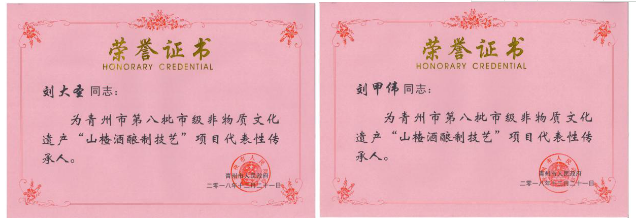 荣誉证书
HONORARY CREDENTIAL
刘大圣同志：
为青州市第八批市级非物质文化
遗产“山楂酒酿制技艺”项目代表性传
承人。
青州市人民政府
二〇一八年十二月二十一日
荣誉证书
HONORARY CREDENTIAL
刘甲伟同志：
为青州市第八批市级非物质文化
遗产“山楂酒酿制技艺”项目代表性传
承人。
青州市人民政府
二〇一八年十二月二十一日